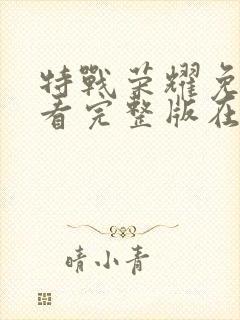 特戰荣耀免
看完整版在
晴小青